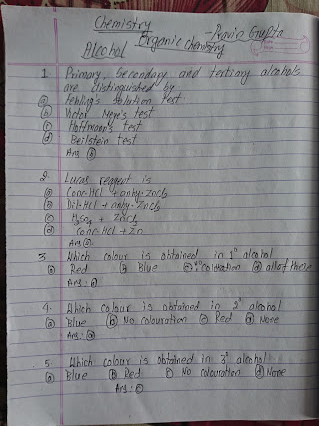 Chemistry
-Ravin Gupta
Organic Chemistry
Alcohol
1. Primary, Secondary and tertiary alcohols
are distinguished by
(a) Fehling's solution test
(b) Victor Meye's test
(c) Hoffmann's test
(d) Beilstein test
Ans (b)
2. Lucas reagent is
(a) Conc HCl + anhy. ZnCl2
(b) Dil. HCl + anhy. ZnCl2
(c) H2SO4 + ZnCl2
(d) Conc HCl + Zn
Ans (a)
3. Which colour is obtained in 1° alcohol
(a) Red (b) Blue (c) No colouration (d) all of these
Ans:
4. Which colour is obtained in 2° alcohol
(a) Blue (b) No colouration (c) Red (d) None
Ans: (a)
5. Which colour is obtained in 3° alcohol
(a) Blue (b) Red (c) No colouration (d) None
Ans: (c)